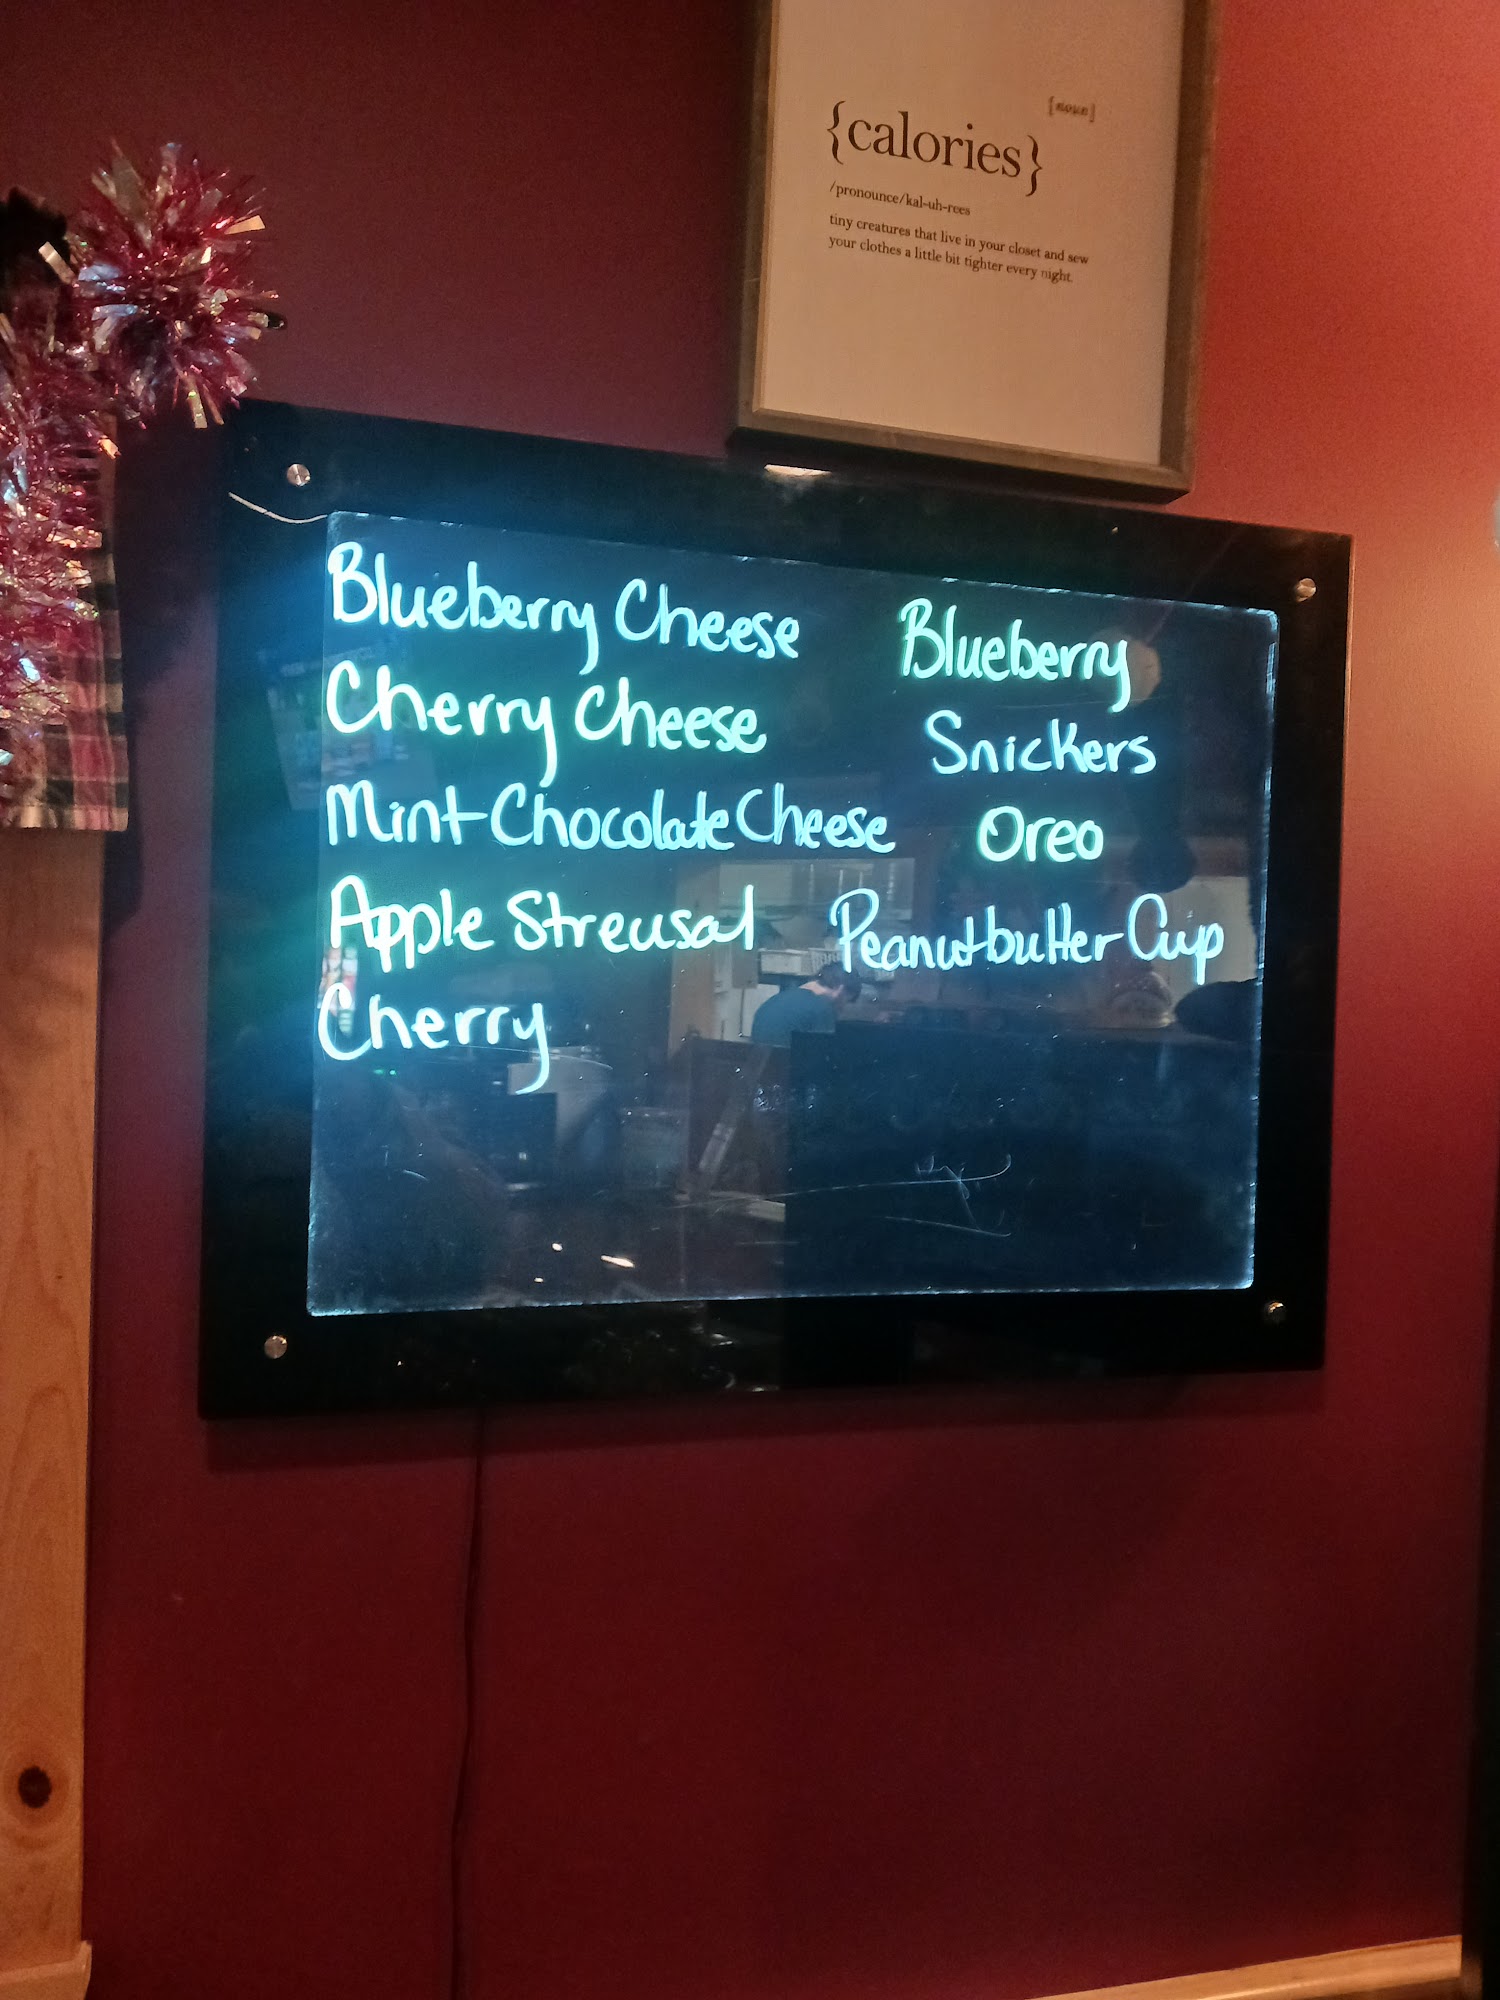 [noun]
{calories}
/pronounce/kal-uh-rees
tiny creatures that live in your closet and sew
your clothes a little bit tighter every night.
Blueberry Cheese
Cherry Cheese
Mint Chocolate Cheese
Apple Streusal
Cherry
Blueberry
Snickers
Oreo
Peanutbutter Cup